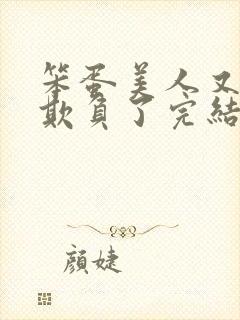 笨蛋美人又
欺負了完結
顏婕